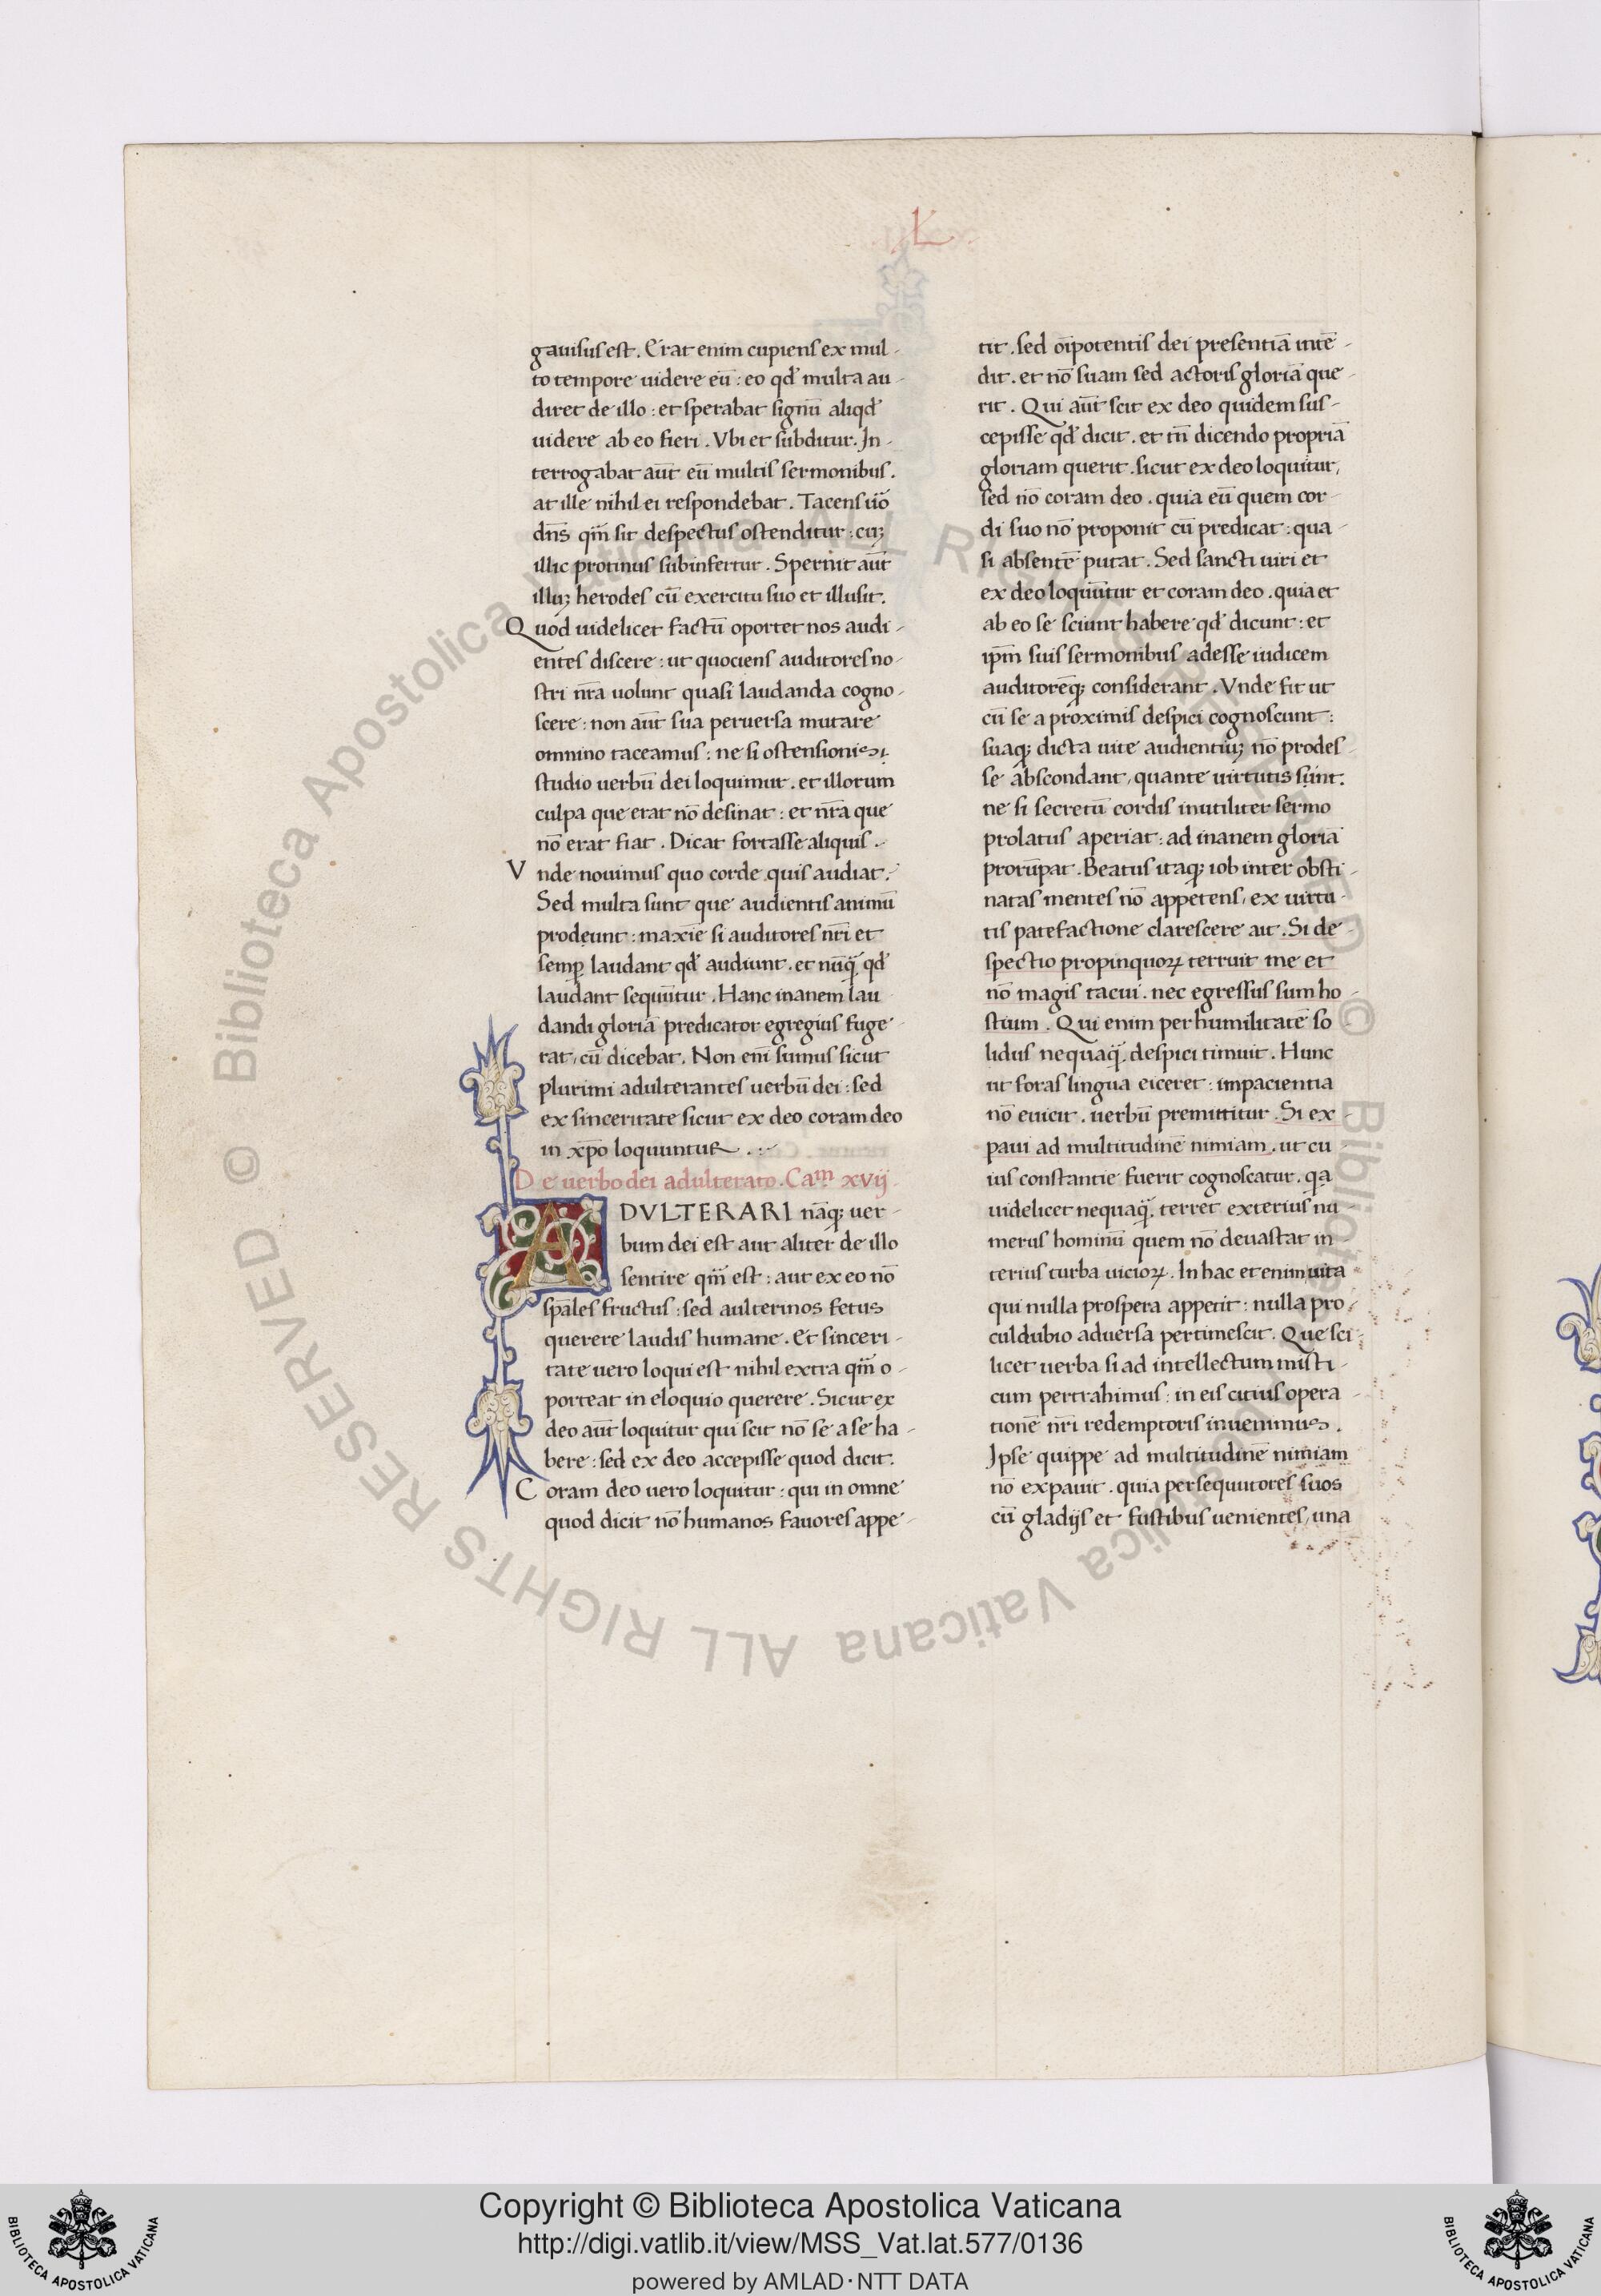 .L.
gauisus est. Erat enim cupiens ex mul-
to tempore uidere eū: eo qđ multa au-
diret de illo: et sperabat signū aliqđ
uidere ab eo fieri. Vbi et subditur. In-
terrogabat aūt eū multis sermonibus.
at ille nihil ei respondebat. Tacens uō
dn̄s qm̄ sit despectus ostenditur: cuȝ
illic protinus subinfertur. Spernit aūt
illuȝ herodes cū exercitu suo et illusit.
Quod uidelicet factū oportet nos audi-
entes discere: ut quociens auditores no-
stri nr̄a uolunt quasi laudanda cogno-
scere: non aūt sua peruersa mutare
omnino taceamus: ne si ostensionis
studio uerbū dei loquimur. et illorum
culpa que erat nō desinat: et nr̄a que
nō erat fiat. Dicat fortasse aliquis.
Vnde nouimus quo corde quis audiat.
Sed multa sunt que audientis animū
prodeunt: maxīe si auditores nr̄i et
semꝑ laudant qđ audiunt. et nūq̄ qđ
laudant sequūtur. Hanc inanem lau
dandi gloriā predicator egregius fuge-
rat, cū dicebat. Non eni̅ sumus sicut
plurimi adulterantes uerbū dei: sed
ex sinceritate sicut ex deo coram deo
in xp̄o loquuntur.
De uerbo dei adulterato. Cam̄ xvij.
ADVLTERARI nāqȝ uer-
bum dei est aut aliter de illo
sentire qm̄ est: aut ex eo nō
sp̄ales fructus: sed aulterinos fetus
querere laudis humane. Et sinceri-
tate uero loqui est nihil extra qm̄ o-
porteat in eloquio querere. Sicut ex
deo aūt loquitur qui scit nō se a se ha-
bere: sed ex deo accepisse quod dicit.
Coram deo uero loquitur: qui in omne
quod dicit nō humanos fauores appe-
tit. sed oi̅potentis dei presentiā intē-
dit. et nō suam sed actoris gloriā que-
rit. Qui aūt scit ex deo quidem sus-
cepisse qđ dicit. et tn̄ dicendo propriā
gloriam querit. sicut ex deo loquitur,
sed nō coram deo. quia eū quem cor-
di suo nō proponit cū predicat: qua-
si absentē putat. Sed sancti uiri et
ex deo loquūtur et coram deo. quia et
ab eo se sciunt habere qđ dicunt: et
ip̄m suis sermonibus adesse iudicem
auditorēqȝ considerant. Vnde fit ut
cū se a proximis despici cognoscunt:
suaqȝ dicta uite audientiuȝ nō prodes-
se abscondant, quante uirtutis sunt.
ne si secretū cordis inutiliter sermo
prolatus aperiat: ad inanem gloriā
prorūpat. Beatus itaqȝ iob inter obsti-
natas mentes nō appetens, ex uirtu-
tis patefactione clarescere ait. Si de-
spectio propinquoꝝ terruit me et
nō magis tacui. nec egressus sum ho-
stium. Qui enim per humilitatē so
lidus nequaq̄ despici timuit. Hunc
ut foras lingua eiceret: impacientia
nō euicit. uerbū premittitur. Si ex-
paui ad multitudinē nimiam. ut cu
ius constantie fuerit cognoscatur. qa
uidelicet nequaq̄ terret exterius nu
merus hominū quem nō deuastat in
terius turba uicioꝝ. In hac etenim uita
qui nulla prospera appetit: nulla pro
culdubio aduersa pertimescit. Que sci
licet uerba si ad intellectum misti-
cum pertrahimus: in eis citius opera-
tionē nr̄i redemptoris inuenimus.
Ipse quippe ad multitudinē nimiam
nō expauit. quia persequutores suos
cū gladijs et fustibus uenientes, una
© Biblioteca Apostolica Vaticana ALL RIGHTS RESERVED © Biblioteca Apostolica Vaticana ALL RIGHTS RESERVED
BIBLIOTECA APOSTOLICA VATICANA
Copyright © Biblioteca Apostolica Vaticana
http://digi.vatlib.it/view/MSS_Vat.lat.577/0136
powered by AMLAD·NTT DATA
BIBLIOTECA APOSTOLICA VATICANA